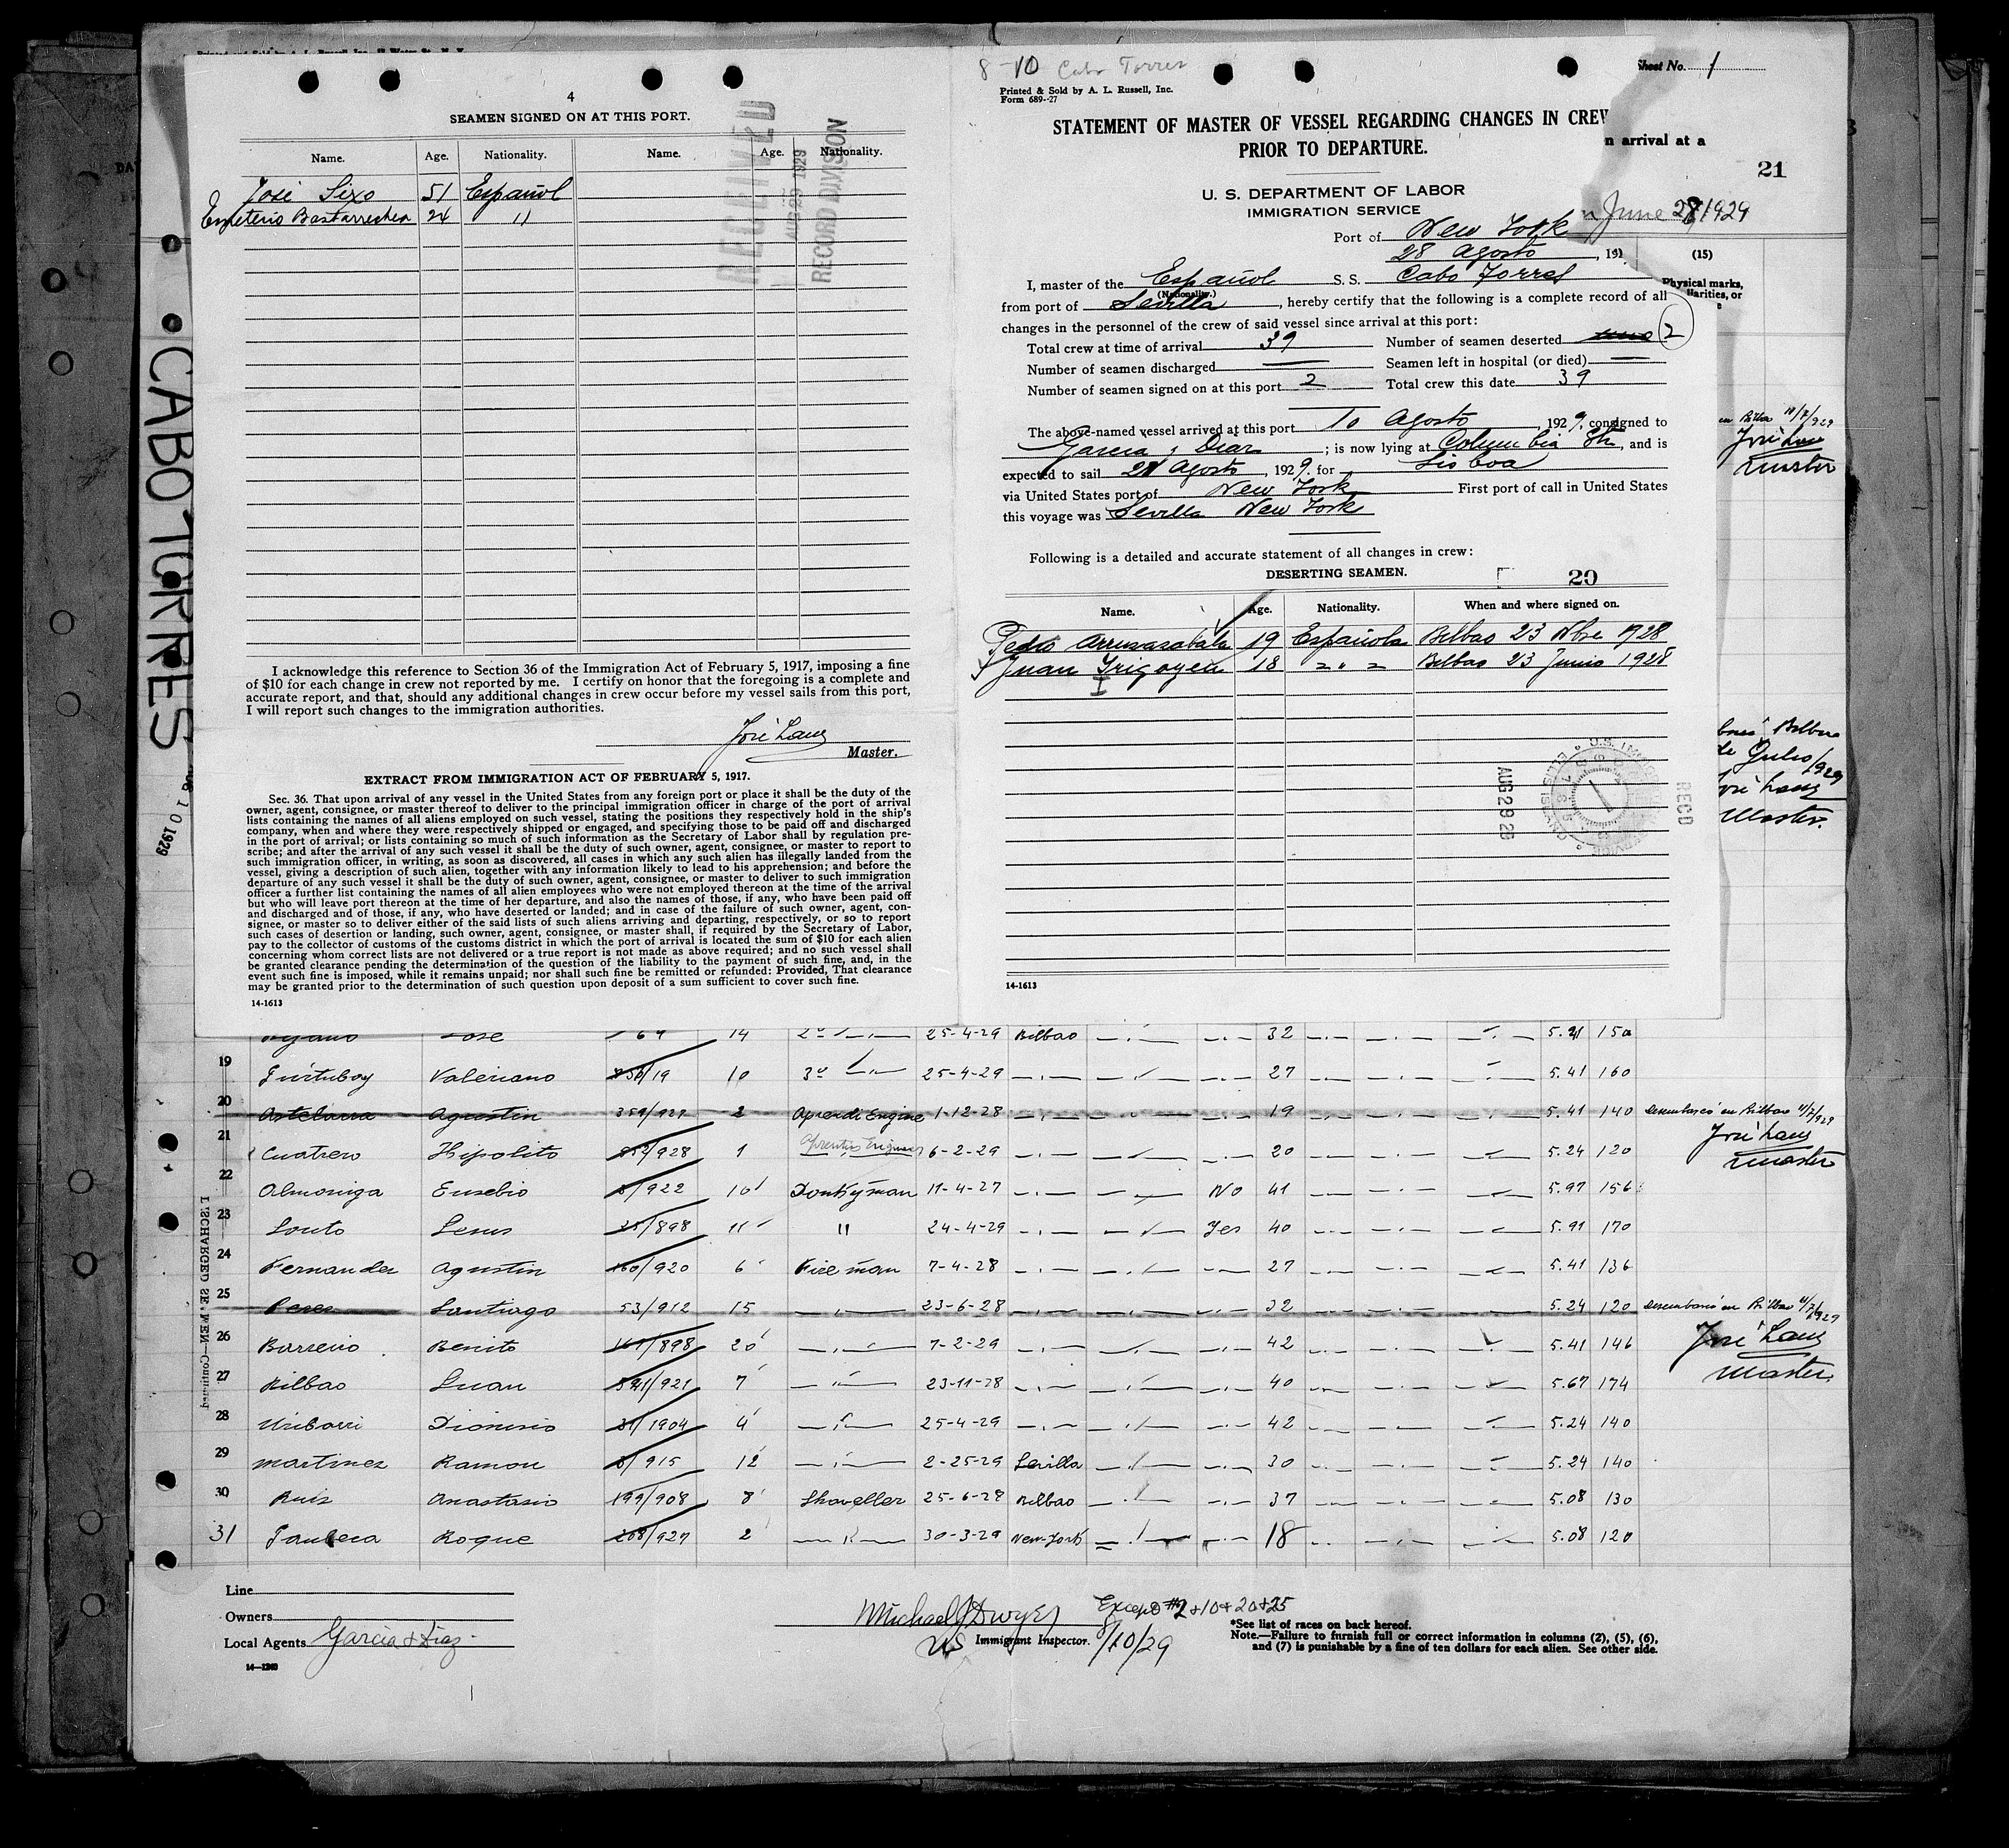 4
SEAMEN SIGNED ON AT THIS PORT.
Name. Age. Nationality. Name. Age. Nationality.
José Sixo 51 Español
Emeterio Bastarrechea 24 "
RECEIVED
AUG 29 1929
RECORD DIVISION
I acknowledge this reference to Section 36 of the Immigration Act of February 5, 1917, imposing a fine
of $10 for each change in crew not reported by me. I certify on honor that the foregoing is a complete and
accurate report, and that, should any additional changes in crew occur before my vessel sails from this port,
I will report such changes to the immigration authorities.
José Lauz
Master.
EXTRACT FROM IMMIGRATION ACT OF FEBRUARY 5, 1917.
Sec. 36. That upon arrival of any vessel in the United States from any foreign port or place it shall be the duty of the
owner, agent, consignee, or master thereof to deliver to the principal immigration officer in charge of the port of arrival
lists containing the names of all aliens employed on such vessel, stating the positions they respectively hold in the ship's
company, when and where they were respectively shipped or engaged, and specifying those to be paid off and discharged
in the port of arrival; or lists containing so much of such information as the Secretary of Labor shall by regulation pre-
scribe; and after the arrival of any such vessel it shall be the duty of such owner, agent, consignee, or master to report to
such immigration officer, in writing, as soon as discovered, all cases in which any such alien has illegally landed from the
vessel, giving a description of such alien, together with any information likely to lead to his apprehension; and before the
departure of any such vessel it shall be the duty of such owner, agent, consignee, or master to deliver to such immigration
officer a further list containing the names of all alien employees who were not employed thereon at the time of the arrival
but who will leave port thereon at the time of her departure, and also the names of those, if any, who have been paid off
and discharged and of those, if any, who have deserted or landed; and in case of the failure of such owner, agent, con-
signee, or master so to deliver either of the said lists of such aliens arriving and departing, respectively, or so to report
such cases of desertion or landing, such owner, agent, consignee, or master shall, if required by the Secretary of Labor,
pay to the collector of customs of the customs district in which the port of arrival is located the sum of $10 for each alien
concerning whom correct lists are not delivered or a true report is not made as above required; and no such vessel shall
be granted clearance pending the determination of the question of the liability to the payment of such fine, and, in the
event such fine is imposed, while it remains unpaid; nor shall such fine be remitted or refunded: Provided, That clearance
may be granted prior to the determination of such question upon deposit of a sum sufficient to cover such fine.
14-1613
8-10 Cabo Torres
Printed & Sold by A. L. Russell, Inc.
Form 689--27
STATEMENT OF MASTER OF VESSEL REGARDING CHANGES IN CREW
PRIOR TO DEPARTURE.
U. S. DEPARTMENT OF LABOR
IMMIGRATION SERVICE
Port of New York
28 Agosto, 19
I, master of the Español S. S. Cabo Torres
(Nationality.)
from port of Sevilla, hereby certify that the following is a complete record of all
changes in the personnel of the crew of said vessel since arrival at this port:
Total crew at time of arrival 39 Number of seamen deserted 2
Number of seamen discharged — Seamen left in hospital (or died) —
Number of seamen signed on at this port 2 Total crew this date 39
The above-named vessel arrived at this port 10 Agosto, 1929, consigned to
Garcia y Diaz; is now lying at Columbia St, and is
expected to sail 28 Agosto, 1929, for Lisboa
via United States port of New York First port of call in United States
this voyage was Sevilla New York
Following is a detailed and accurate statement of all changes in crew:
DESERTING SEAMEN. 20
Name. Age. Nationality. When and where signed on.
Pedro Arruzarabala 19 Española Bilbao 23 Nbre 1928
Juan Yrigoyen 18 " " " Bilbao 23 Junio 1928
I
AUG 29 29
REC'D
14-1613
Sheet No. 1
n arrival at a
21
June 28, 1929
(15)
Physical marks,
peculiarities, or
en Bilbao 10/7/929
José Lauz
master
Bilbao
de Julio/929
José Lauz
Master.
CABO TORRES
AUG 10 1929
DISCHARGED SEAMEN—Continued
José 69 14 2º 25-4-29 Bilbao 32 5.41 150
19 Furtuboy Valeriano 350/19 10 3º 25-4-29 27 5.41 160
20 Astelarra Agustin 359/927 2 Aprendi Engine 1-12-28 19 5.41 140 Desembarcó en Bilbao 11/7/929
José Lauz
master
21 Cuatrero Hipolito 852/928 1 Aprentis Engineer 6-2-29 20 5.24 120
22 Almoniga Eusebio 8/922 10 Donkyman 11-4-27 No 41 5.97 156
23 Souto Jesus 25/898 11 " 24-4-29 Yes 40 5.91 170
24 Fernandez Agustin 160/920 6 Fireman 7-4-28 27 5.41 136
25 Perez Santiago 53/912 15 23-6-28 32 5.24 120 Desembarcó en Bilbao 11/7/929
José Lauz
Master.
26 Barreiro Benito 167/898 20 7-2-29 42 5.41 146
27 Bilbao Juan 521/921 7 23-11-28 40 5.67 174
28 Uribarri Dionisio 31/1904 4 25-4-29 42 5.24 140
29 Martinez Ramon 8/915 12 2-25-29 Sevilla 30 5.24 140
30 Ruiz Anastasio 199/908 8 Shoveller 25-6-28 Bilbao 37 5.08 130
31 Roque 208/927 2 30-3-29 New-York 18 5.08 120
Line
Owners
Local Agents Garcia & Diaz
14—1240
Michael J Dwyer Except #2+10+20+25
US Immigrant Inspector. 8/10/29
*See list of races on back hereof.
Note.—Failure to furnish full or correct information in columns (2), (5), (6),
and (7) is punishable by a fine of ten dollars for each alien. See other side.